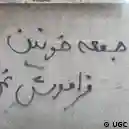 جمعه خونین
فراموش
© UGC